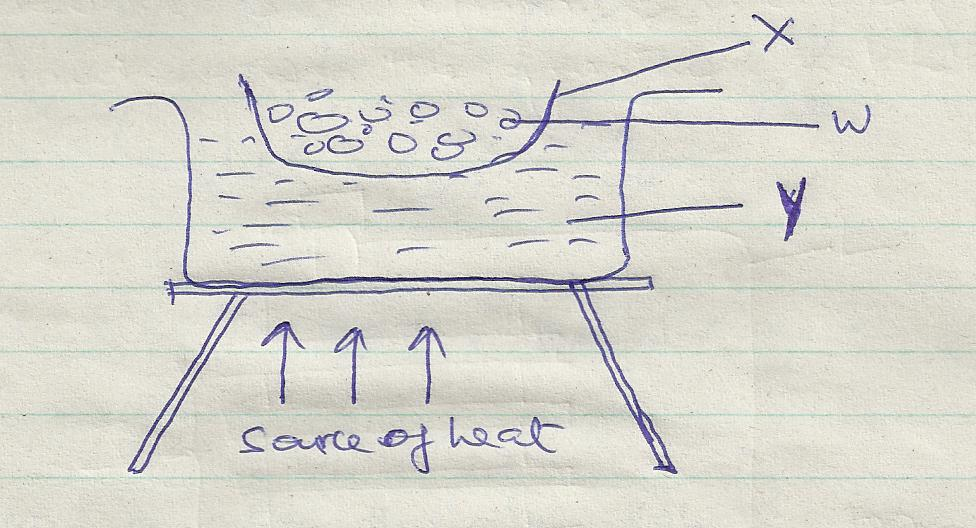 X
W
Y
Source of heat